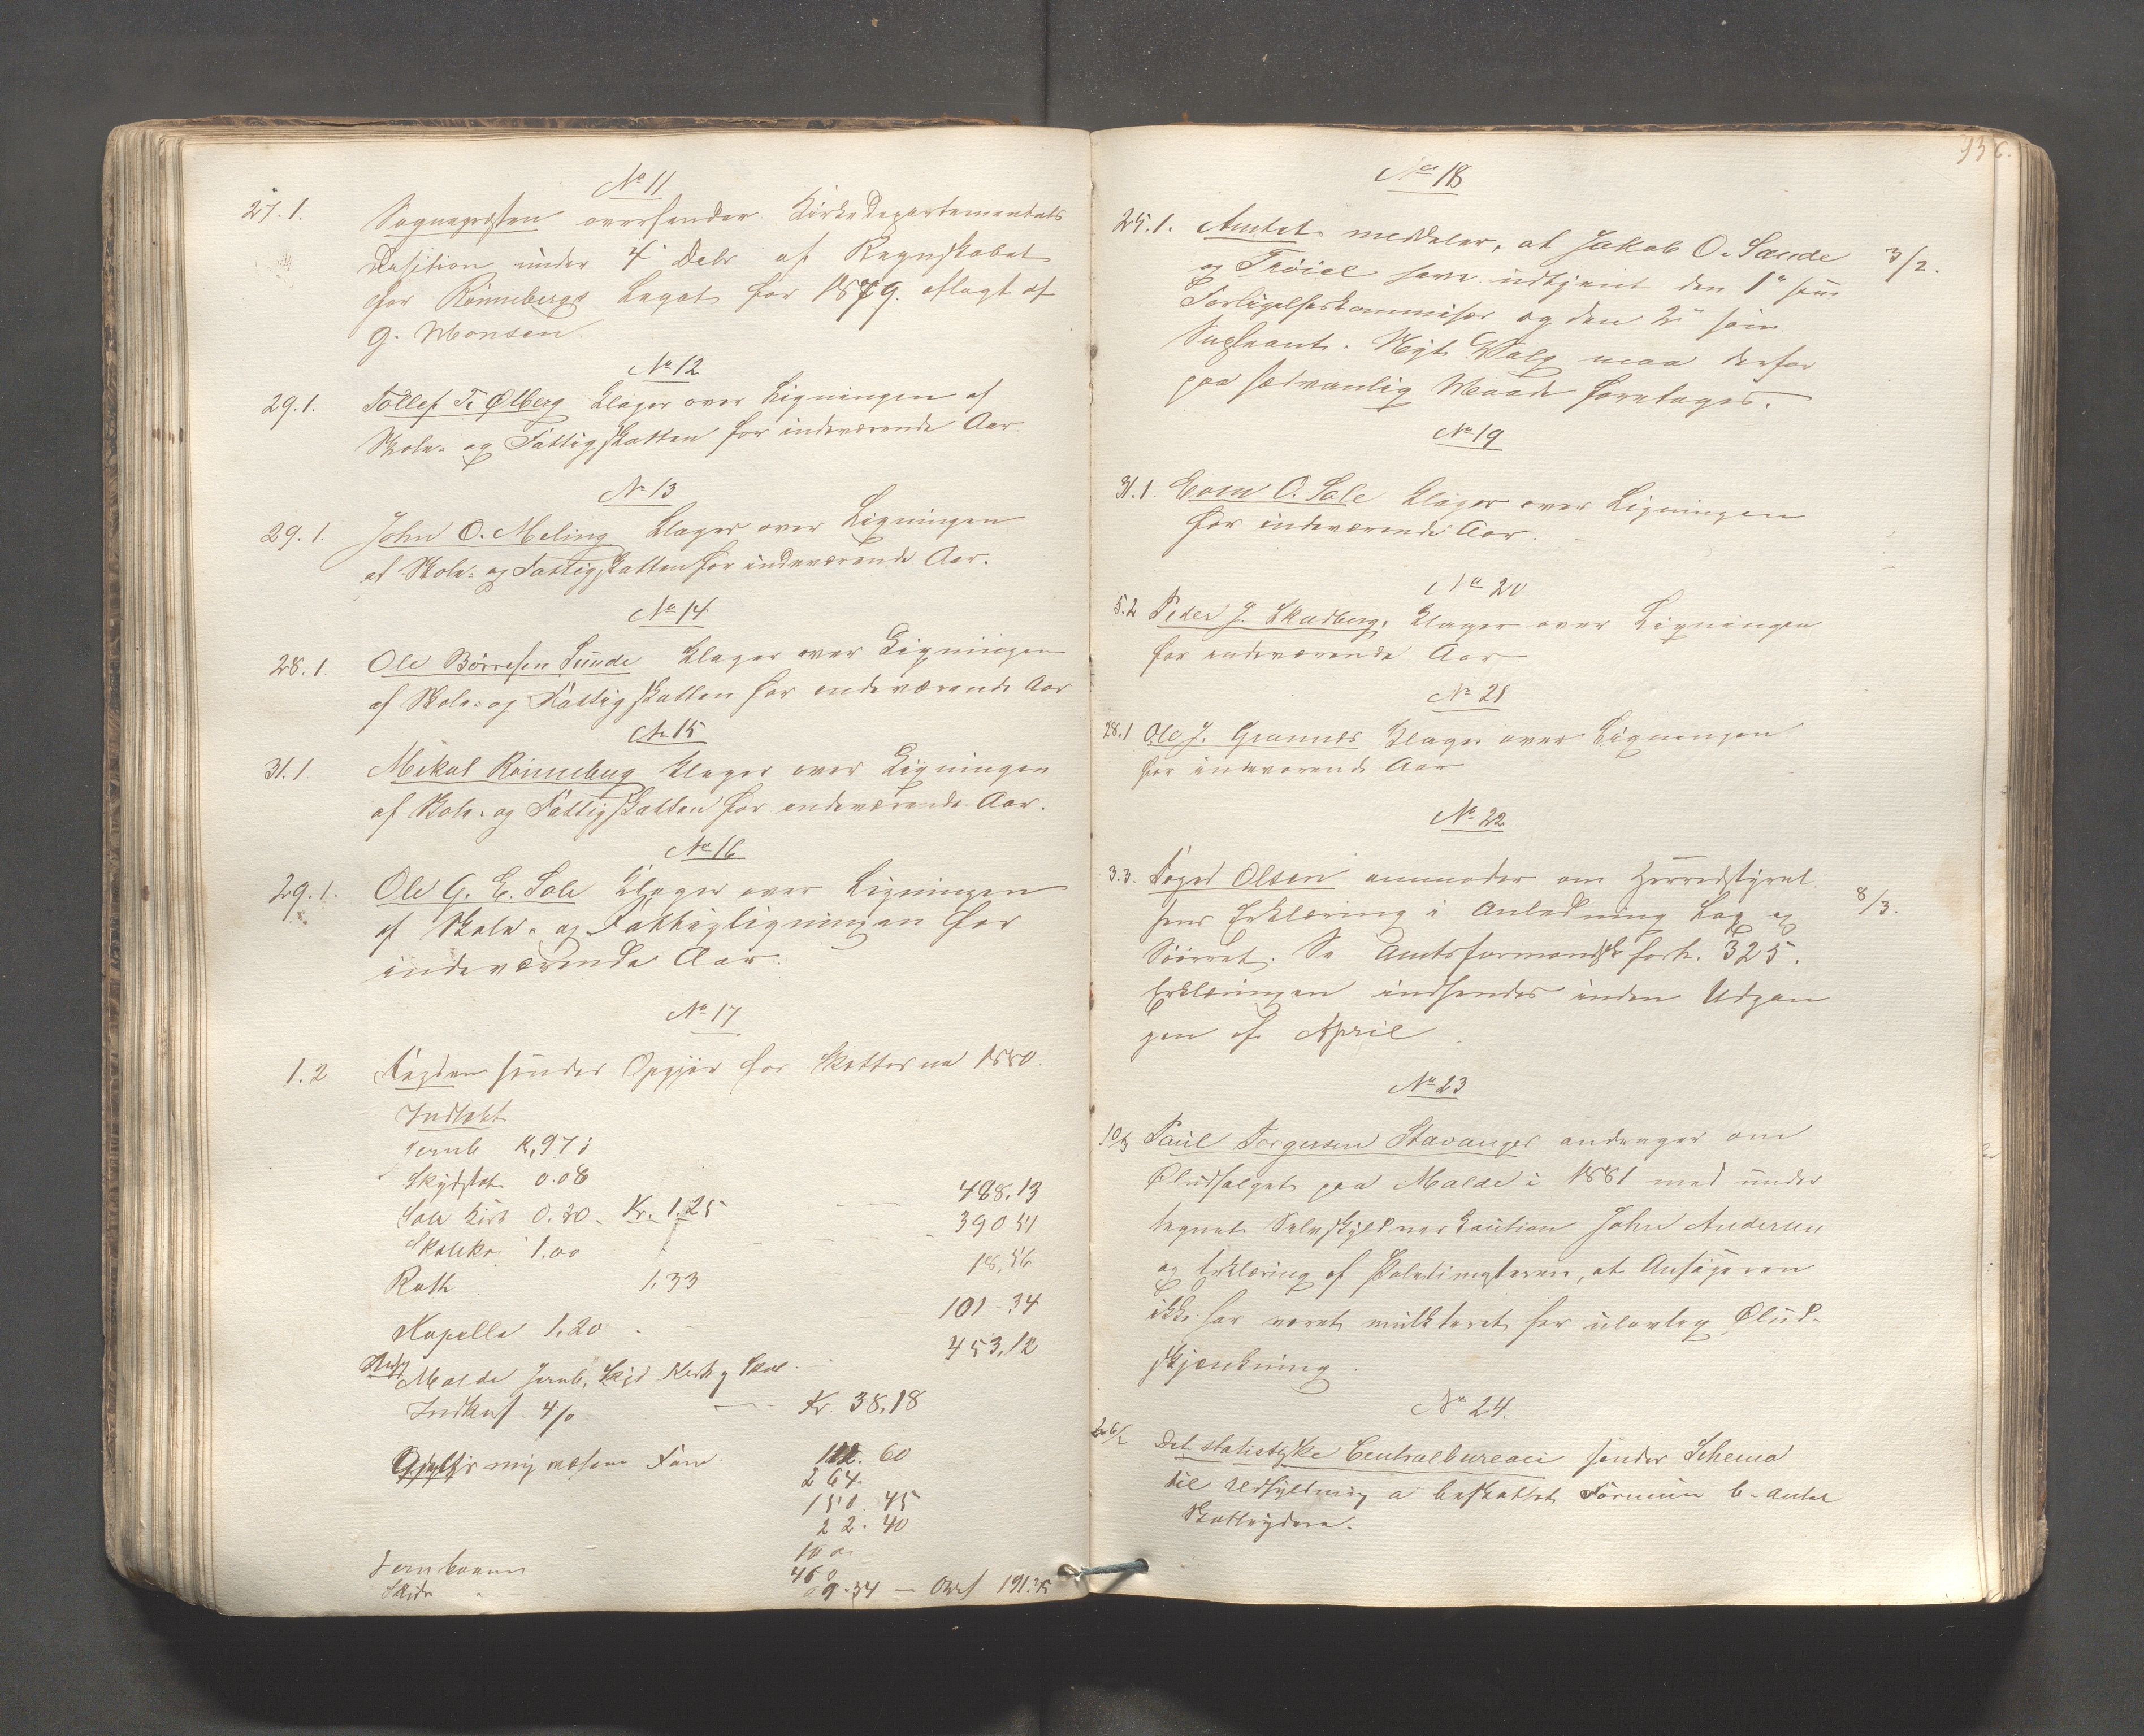 No 11
27.1. Sognepræsten oversender Kirkedepartementets
under 4 Debr af Regnskabet
for Rönnebergs Legat for 1879. aflagt af
G. Monsen.
No 12
29.1. Tollef T. Ølberg klager over Ligningen af
Skole- og Fattigskatten for indeværende Aar.
No 13
29.1. John O. Meling klager over Ligningen
af Skole- og Fattigskatten for indeværende Aar.
No 14
28.1. Ole Börresen Sunde klager over Ligningen
af Skole- og Fattigskatten for indeværende Aar
No 15
31.1 Mikal Rönneberg klager over Ligningen
af Skole- og Fattigskatten for indeværende Aar.
No 16
29.1. Ole G. E. Sole klager over Ligningen
af Skole- og Fattigligningen for
indeværende Aar.
No 17
1.2 Fogden sender Opgjör for Skatterne 1880.
Indtekt
Jernb
Skydssk 0.08 488,13
Sole Kirk 0.30. Kr. 1.25 390 51
Skolek. 1.00 18,56
Rott 1.33
Kapella 1.20 101-34
Malde Jernb, Skyd Kirk og Skole 453,12
Indkas 4/0 Kr. 38,18
60
264.
150. 45
22. 40
100
460
Skyds 9.34
936.
No 18
25.1. Amtet meddeler, at Jakob O. Sande 3/2.
og Tröiel have udtjent den 1e som
Forligelseskommisær og den 2e som
Supleant. Nyt Valg maa derfor
paa sædvanlig Maade foretages.
No 19
31.1. Even O. Sole klager over Ligningen
for indeværende Aar.
No 20
5.2 Peder J. Skadberg, klager over Ligningen
for indeværende Aar
No 21
28.1 Ole J. Grannes klager over Ligningen
for indeværende Aar
No 22
3.3. Foged Olsen anmoder om Herredstyrel 8/3.
sens Erklæring i Anledning Lag og
Söörret. Se Amtsformandsk forh. 325.
Erklæringen indsendes inden Udgan
gen af April
No 23
Paul Torgersen Stavanger andrager om
Øludsalget paa Malde i 1881 med under
tegnet Selvskyldnerkaution John Andersen
og Erklæring af Politimesteren, at Ansögeren
ikke har været mulkteret for ulovlig Ølud-
skjenkning.
No 24.
26/2 Det statistiske Centralbureau sender Schema
til Udfyldning a beskattet Formue b. Antal
Skatteydere.